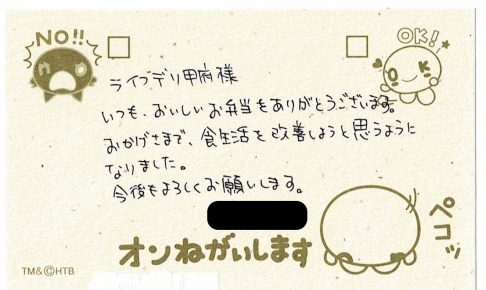 NO!!
OK!
ライフデリ甲府様
いつも、おいしいお弁当をありがとうございます。
おかげさまで、食生活を改善しようと思うように
なりました。
今後もよろしくお願いします。
ペコッ
オンねがいします
TM&©HTB